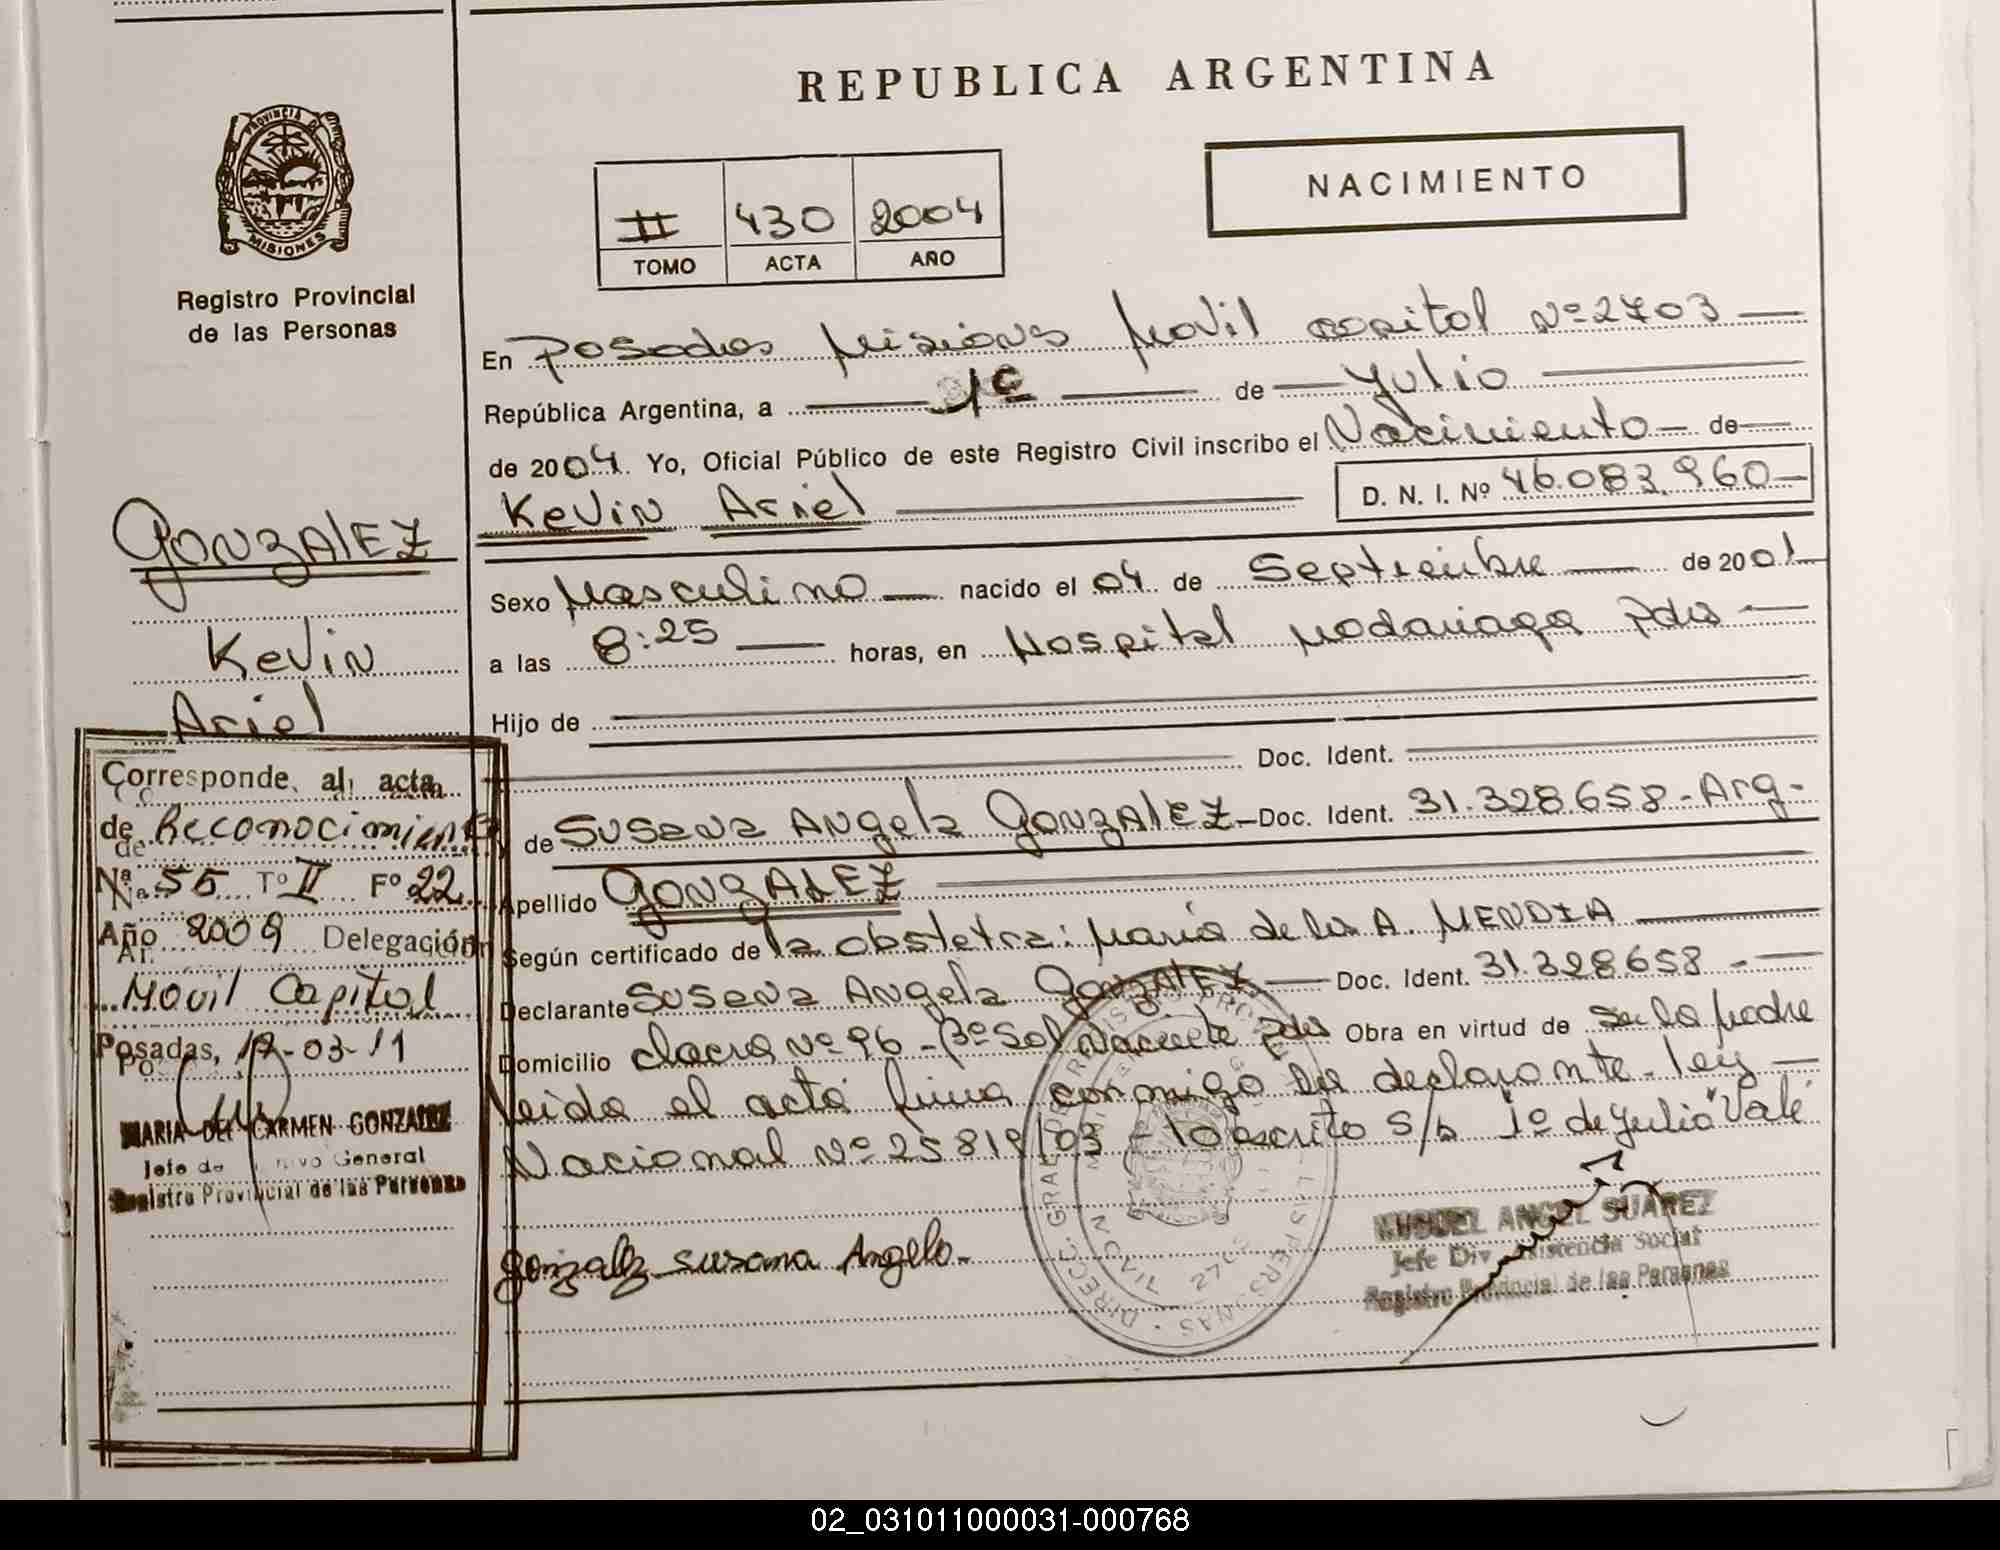 REPUBLICA ARGENTINA
PROVINCIA DE
MISIONES
Registro Provincial
de las Personas
NACIMIENTO
II 430 2004
TOMO ACTA AÑO
En Posadas Misiones Movil capital Nº 2703
República Argentina, a 1º de Julio
de 2004. Yo, Oficial Público de este Registro Civil inscribo el Nacimiento de
Kevin Ariel D. N. I. Nº 46.083.960
Sexo Masculino nacido el 04 de Septiembre de 2001
a las 8:25 horas, en Hospital Madariaga Pdas
Hijo de
Doc. Ident.
de Susana Angela GONZALEZ Doc. Ident. 31.328.658-Arg-
Apellido GONZALEZ
Según certificado de la obstetra: María de los A. MENDIA
Declarante Susana Angela GONZALEZ Doc. Ident. 31.328658
Domicilio chacra Nº 96 - Bº Sol Naciente Pdas Obra en virtud de Ser la Madre
Leida el acta firma conmigo la declarante. Ley
Nacional Nº 25819/03 - 10 escrito s/b 1º de Julio "Vale
Gonzalez Susana Angela.
MIGUEL ANGEL SUAREZ
Jefe Div. Asistencia Social
Registro Provincial de las Personas
GONZALEZ
Kevin
Ariel
Corresponde al acta
de Reconocimiento
Nº 55 Tº II Fº 22
Año 2009 Delegación
Movil Capital
Posadas, 17-03-11
MARIA DEL CARMEN GONZALEZ
Jefe de General
Registro Provincial de las Personas
02_031011000031-000768